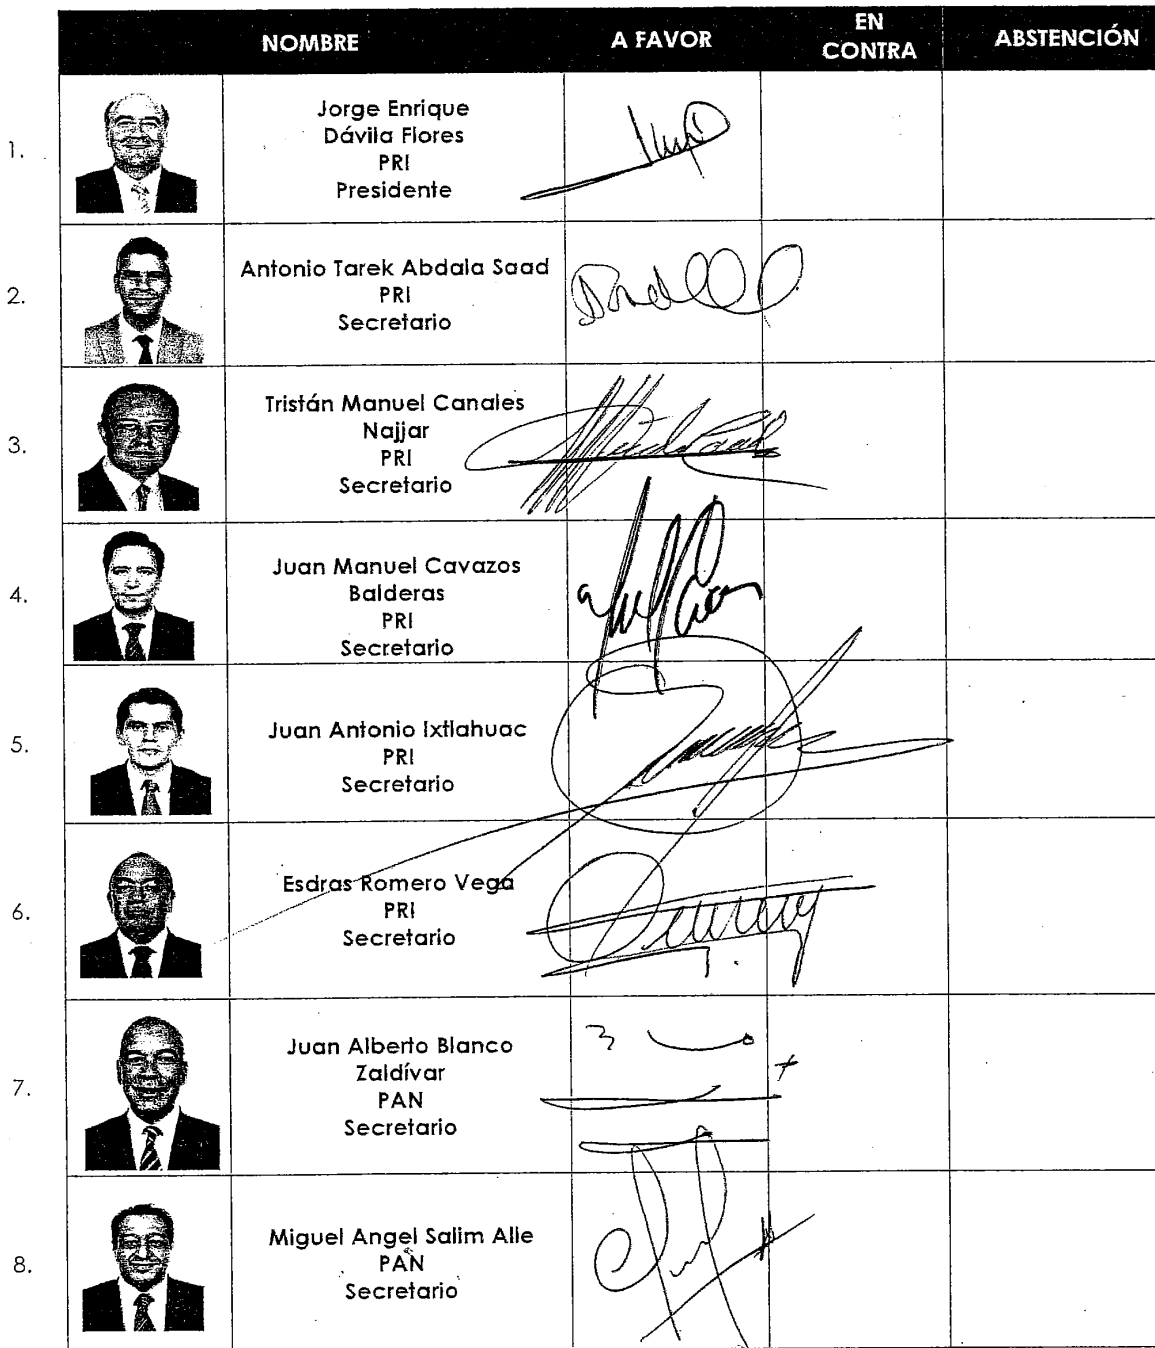 NOMBRE A FAVOR EN CONTRA ABSTENCIÓN
1. Jorge Enrique
Dávila Flores
PRI
Presidente
2. Antonio Tarek Abdala Saad
PRI
Secretario
3. Tristán Manuel Canales
Najjar
PRI
Secretario
4. Juan Manuel Cavazos
Balderas
PRI
Secretario
5. Juan Antonio Ixtlahuac
PRI
Secretario
6. Esdras Romero Vega
PRI
Secretario
7. Juan Alberto Blanco
Zaldívar
PAN
Secretario
8. Miguel Angel Salim Alle
PAN
Secretario